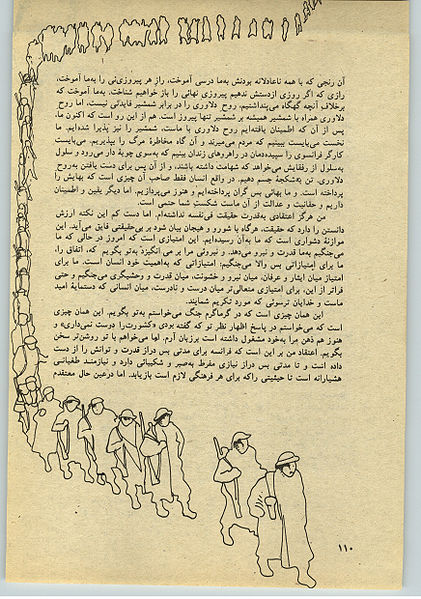 آن رنجی که با همه ناعادلانه بودنش به‌ما درسی آموخت، راز هر پیروزی‌ئی را به‌ما آموخت،
رازی که اگر روزی ازدستش ندهیم پیروزی نهائی را باز خواهیم شناخت. به‌ما آموخت که
برخلاف آنچه گهگاه می‌پنداشتیم، روح دلاوری را در برابر شمشیر فایدتی نیست، اما روح
دلاوری همراه با شمشیر همیشه بر شمشیر تنها پیروز است. هم از این رو است که اکنون ما،
پس از آن که اطمینان یافته‌ایم روح دلاوری با ماست، شمشیر را نیز پذیرا شده‌ایم. ما
نخست می‌بایست ببینیم که مردم می‌میرند و آن گاه مخاطرۀ مرگ را بپذیریم. می‌بایست
کارگر فرانسوی را سپیده‌دمان در راهروهای زندان ببینیم که به‌سوی چوبۀ دار می‌رود و سلول
به‌سلول از رفقایش می‌خواهد که شهامت داشته باشند، و از آن پس برای دست یافتن به‌روح
دلاوری، تن به‌شکنجۀ جسم دهیم. در واقع انسان فقط صاحب آن چیزی است که بهایش را
پرداخته است. و ما بهائی بس گران پرداخته‌ایم و هنوز می‌پردازیم. اما دیگر یقین و اطمینان
داریم و حقانیت و عدالت از آن ماست شکستِ شما حتمی است.
من هرگز اعتقادی به‌قدرت حقیقت فی‌نفسه نداشته‌ام. اما دست کم این نکته ارزش
دانستن را دارد که حقیقت، هرگاه با شور و هیجان بیان شود بر بی‌حقیقتی فایق می‌آید. این
موازنۀ دشواری است که ما به‌آن رسیده‌ایم. این امتیازی است که امروز در حالی که ما
می‌جنگیم به‌ما قدرت و نیرو می‌دهد. و نیروئی مرا بر می انگیزد به‌تو بگویم که، اتفاق را،
ما برای امتیازاتی بس والا می‌جنگیم: امتیازاتی که به‌اهمیت خود انسان است. ما برای
امتیاز میان ایثار و عرفان، میان نیرو و خشونت، میان قدرت و وحشیگری می‌جنگیم و حتی
فراتر از این، برای امتیازی متعالی‌تر میان درست و نادرست، میان انسانی که دستمایۀ امید
ماست و خدایان ترسوئی که مورد تکریم شمایند.
این همان چیزی است که در گرماگرم جنگ می‌خواستم به‌تو بگویم. این همان چیزی
است که می‌خواستم در پاسخ اظهار نظر تو که گفته بودی «کشورت‌را دوست نمی‌داری» و
هنوز هم ذهن مرا به‌خود مشغول داشته است برزبان آرم. لها می‌خواهم با تو روشن‌تر سخن
بگویم. اعتقاد من بر این است که فرانسه برای مدتی بس دراز قدرت و توانش را از دست
داده است و تا مدتی بس دراز نیازی مفرط به‌صبر و شکیبائی دارد و نیازمند طغیانی
هشیارانه است تا حیثیتی راکه برای هر فرهنگی لازم است بازیابد. اما درعین حال معتقدم
۱۱۰